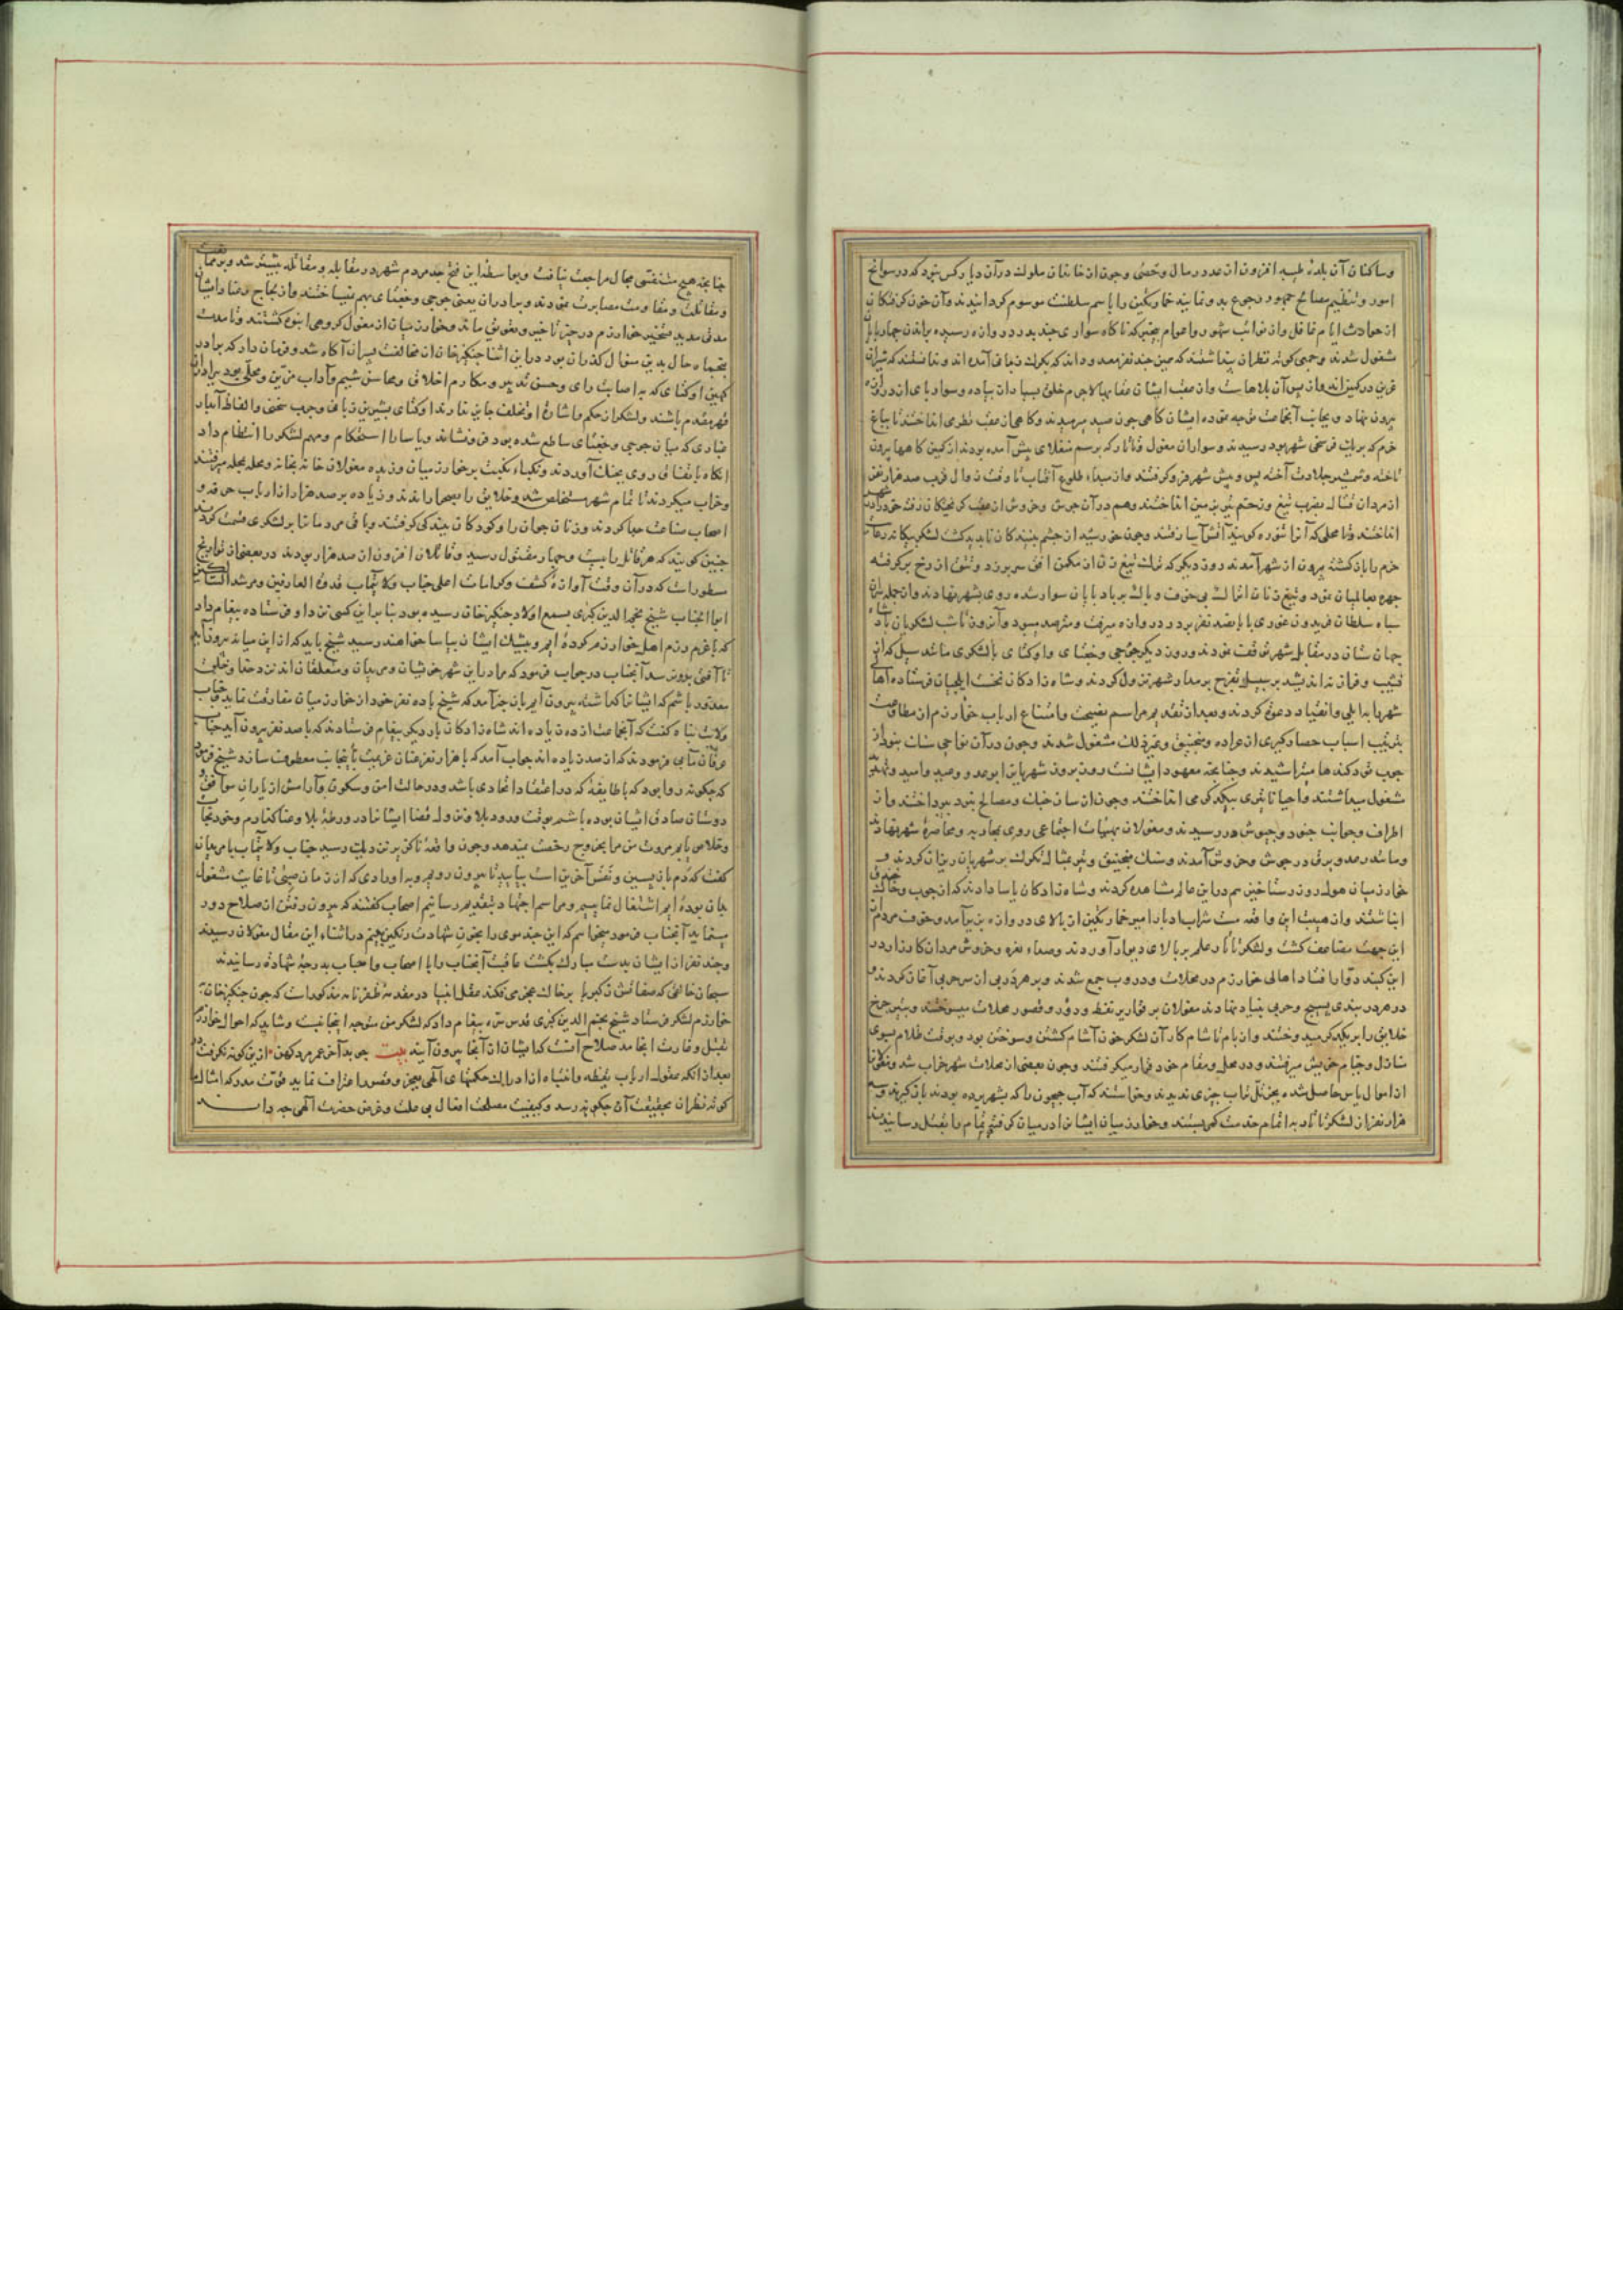 وساکنان آن بلدهٔ طیبه افزون از عدد رمال وحصی وچون از خاندان ملوک در آن دیار کس نبود که در سوانح
امور وتنظیم مصالح جمهور رجوع بدو نمایند خمارتکین را باسم سلطنت موسوم کردانیدند وآن خون کرفتکان
از حوادث ایام غافل واز نوائب شهور واعوام بیخبر که ناکاه سواری چند بدر دروازه رسیده براندن چهارپایان
مشغول شدند وجمعی کوته نظران پنداشتند که همین چند نفر معدوداند که بکرک دغا آمده اند وندانستند که شیران
عرین در کمین اند واز پس آن بلاهاست واز عقب ایشان عقابها لاجرم خلق بسیار از پیاده وسوار پای از دروازه
بیرون نهاد وبجانب آنجماعت توجه نموده ایشان کاهی چون صید میرمیدند وکاهی از عقب نظر می انداختند تا بباغ
خرم که بر یک فرسخی شهر بود رسیدند وسواران مغول وتاتار که برسم منقلای پیش آمده بودند از کمین کاهها بیرون
تاخته وشمشیر جلادت آخته پس وپیش شهر فرو کرفتند واز مبداء طلوع آفتاب تا وقت زوال قریب صد هزار نفر
از مردان قتال بضرب تیغ وزخم تیر بر زمین انداختند وهم در آن جوش وخروش از عقب کریختکان رفته خود را در شهر
انداختند وتا محلی که آنرا تنوره کویند آتش آسا رفتند وچون خورشید از چشم بینندکان ناپدید کشت لشکر بیکانه رعایت
حزم را بازکشته بیرون از شهر آمدند روز دیکر که ترک تیغ زن از مکمن افق سر برزد وتتق از رخ برکرفته
چهره بعالمیان نمود وتیغ زنان اتراک بی خوف وباک بر بادپایان سوار شده روی بشهر نهادند واز جمله سران
سپاه سلطان فریدون غوری با پانصد نفر مرد در دروازه میرفت ومترصد میبود وآنروز تا شب لشکریان پادشاه
جهان ستان در مقابل شهر توقف نمودند وروز دیکر جوجی وجغتای واوکتای با لشکری مانند سیل که از
نشیب وفراز نه اندیشد بر سبیل تفرج بر مدار شهر نزول کردند وشاهزادکان نخست ایلچیان فرستاده اهالی
شهر را به ایلی وانقیاد دعوت کردند وبعد از تقدیم مراسم نصیحت وامتناع ارباب خوارزم از مطاوعت
بترتیب اسباب حصارکیری از عراده ومنجنیق وغیر ذلک مشغول شدند وچون در آن نواحی سنک نبود از
چوب توت کندها میتراشیدند وچنانچه معهود ایشانست روز بروز شهریان را بوعد ووعید وامید وتهدید
مشغول میداشتند واحیانا تیری بیکدیکر می انداختند وچون از ساز جنک ومصالح نبرد بپرداختند واز
اطراف وجوانب جنود وجیوش در رسیدند ومغولان بهیئات اجتماعی روی بمحاربه ومحاصرهٔ شهر نهادند
ومانند رعد وبرق در جوش وخروش آمدند وسنک منجنیق وتیر مثال تکرک بر شهریان ریزان کردند و
خوارزمیان هول روز رستاخیز هم در این عالم مشاهده کردند وشاهزادکان یاسا دادند که از چوب وخاک خندق
انباشتند واز هیبت این واقعه مست شراب ادبار امیر خمارتکین از بالای دروازه بزیر آمد وخوف مردم از
این جهت مضاعف کشت ولشکر تاتار علم بر بالای دیوار آوردند وصداء نعره وخروش مردان کارزار در
این کنبد دوار افتاد اهالی خوارزم در محلات ودروب جمع شدند وبر هر دربی از سر حربی آغاز کردند و
در هر دربندی بسیج وحربی بنیاد نهادند مغولان بر قواریر نفط ودور وقصور محلات میسوختند وبتیر چرخ
خلائق را بر یکدیکر میدوختند واز بام تا شام کار آن لشکر خون آشام کشتن وسوختن بود وبوقت ظلام بسوی
منازل وخیام خویش میرفتند ودر محل ومقام خود قرار میکرفتند وچون بعضی از محلات شهر خراب شد ومغولان را
از اموال یاس حاصل شده بجز تل تراب چیزی ندیدند وخواستند که آب جیحون را که بشهر برده بودند باز کیرند وسه
هزار نفر از لشکر تاتار به اتمام خدمت کمر بستند وخوارزمیان ایشان را در میان کرفته تمام را بقتل رسانیدند
چنانچه هیچ متنفسی مجال مراجعت نیافت وبواسطهٔ این فتح جد مردم شهر در مقابله ومقاتله بیشتر شد وبر محاربت
ومقاتلت ومقاومت مصابرت نمودند وبرادران یعنی جوجی وجغتای بهم نمیساختند واز لجاج وعناد ایشان
مدتی مدید تسخیر خوارزم در حیز تاخیر وتعویق ماند وخوارزمیان از مغول کروهی انبوه کشتند وتا مدت
پنجماه حال بدین منوال کذران بود در این اثنا چنکیز خان از مخالفت پسران آکاه شد وفرمان داد که برادر
کهین اوکتای که به اصابت رای وحسن تدبیر ومکارم اخلاق ومحاسن شیم وآداب مزین ومحلی بود برادران
مهتر مقدم باشند ولشکر از حکم واشارهٔ او تخلف جایز ندارند اوکتای بشیرین زبانی وچرب سخنی والفاظ آبدار
غباری که میان جوجی وجغتای ساطع شده بود فرونشاند ویاسا را استحکام ومهم لشکر را انتظام داد
آنکاه باتفاق روی بجنک آوردند ونکباء نکبت بر خوارزمیان وزیده مغولان خانه بخانه ومحله بمحله میرفتند
وخراب میکردند تا تمام شهر مستخلص شد وخلائق را بصحرا راندند وزیاده بر صد هزار از ارباب حرف و
اصحاب صناعت جدا کردند وزنان جوان را وکودکان ببندکی کرفتند وباقی مردمان را بر لشکری قسمت کردند
چنین کویند که هر قاتل را بیست وچهار مقتول رسید وقاتلان افزون از صد هزار بودند در بعضی از تواریخ
مسطور است که در آن وقت آوازهٔ کشف وکرامات اعلی جناب ولایتمآب قدوة العارفین ومرشد السالکین
ابو الجناب شیخ نجم الدین کبری بسمع اولاد چنکیز خان رسیده بود بنابراین کسی نزد او فرستاده پیغام داد
که ما عزم رزم اهل خوارزم کرده ایم وبیشک ایشان بیاسا خواهند رسید شیخ باید که از این میانه بیرون آید
تا آفتی بدو نرسد آنجناب در جواب فرمود که مرا در این شهر خویشان ومریدان ومتعلقان اند نزد خدا وخلق
معذور نباشم که ایشان را کذاشته بیرون آیم باز خبر آمد که شیخ با ده نفر خود از خوارزمیان مفارقت نماید جناب
ولایت پناه کفت که آنجماعت از ده زیاده اند شاهزادکان بار دیکر پیغام فرستادند که با صد نفر بیرون آید جناب
عرفان مآبی فرمودند که از صد زیاده اند جواب آمد که با هزار نفر عنان عزیمت باینجانب معطوف سازد شیخ فرمود
که چکونه روا بود که با طایفهٔ که در اعتقاد اتحادی باشد ودر حالت امن وسکون وآرامش از یاران موافق و
دوستان صادق ایشان بوده باشم بوقت ورود بلا ونزول قضا ایشان را در ورطهٔ بلا وعنا کذارم وخود نجات
وخلاص یابم مروت من مرا بخروج رخصت نمیدهد وچون واقعهٔ ناکزیر نزدیک رسید جناب ولایتمآب با مریدان
کفت که دم بازپسین ونفس آخرین است بیایید تا بیرون رویم وبه اورادی که از زمان صبی تا غایت مشغول
بدان بوده ایم اشتغال نماییم ومراسم اجتهاد بتقدیم رسانیم اصحاب کفتند که بیرون رفتن از صلاح دور
مینماید آنجناب فرمود میخواهم که این چند موی را بخون شهادت رنکین بینم در اثناء این مقال مغولان رسیدند
وچند نفر از ایشان بدست مبارک بکشت عاقبت آنجناب را با اصحاب واحباب بدرجهٔ شهاده رسانیدند
سبحان خالقی که صفاتش ز کبریا بر خاک عجز می فکند عقل انبیا در مقدمهٔ ظفرنامه مذکور است که چون چنکیز خان به
خوارزم لشکر فرستاد شیخ نجم الدین کبری قدس سره پیغام داد که لشکر من متوجه اینجانبست وشاید که احوال خوارزم
بقتل وغارت انجامد صلاح آنست که ایشان از آنجا بیرون آیند بیت
بعد از آنکه عقول ارباب یقظه وانتباه از ادراک حکمتهای الهی بعجز وقصور اعتراف نماید قوت مدرکه امثال ما
کوته نظران بحقیقت آن چکونه رسد وکیفیت مصلحت افعال بی علت وغرض حضرت الهی چه داند